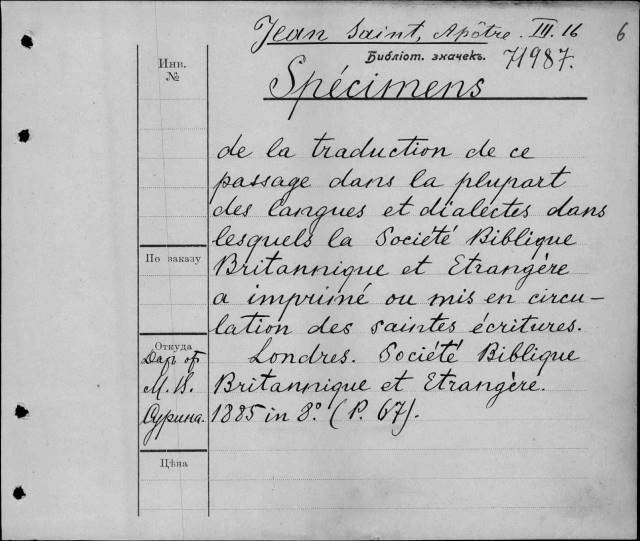 Jean Saint, Apôtre. III. 16
6
Библіот. значекъ.
71987.
Инв.
№
Spécimens
de la traduction de ce
passage dans la plupart
des langues et dialectes dans
lesquels la Société Biblique
По заказу
Britannique et Etrangère
a imprimé ou mis en circu-
lation des saintes écritures.
Откуда
Londres. Société Biblique
Даръ от
Britannique et Etrangère.
М. В.
1885 in 8°. (P. 67).
Сурина.
Цѣна